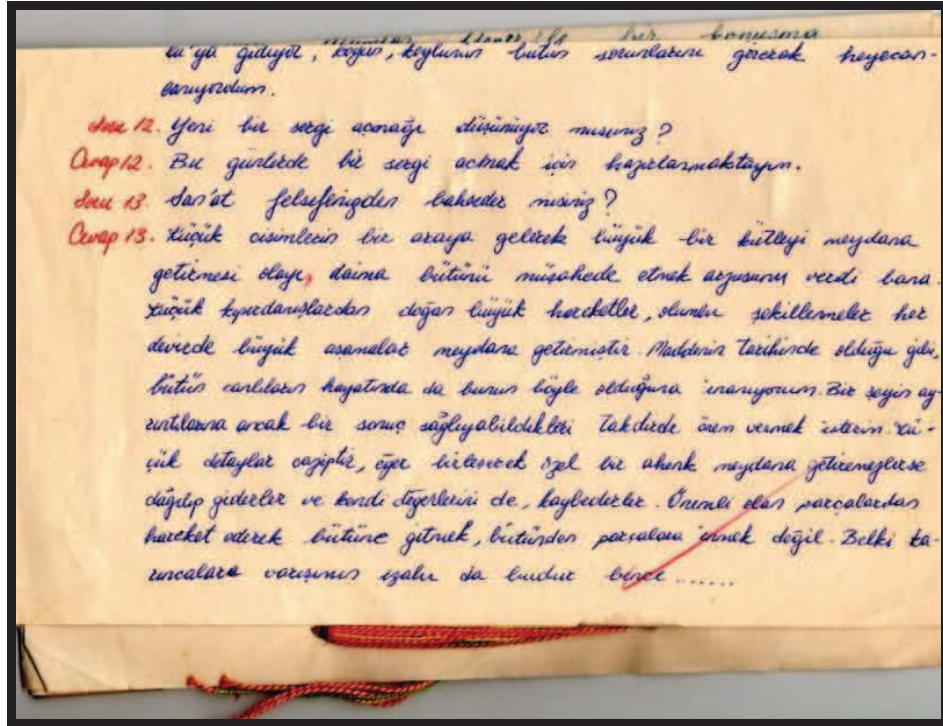 bir konuşma
ka'ya gidiyor, köyün, köylünün bütün sorunlarını görerek heyecan-
lanıyordum.
Soru 12. Yeni bir sergi açmağı düşünüyor musunuz?
Cevap 12. Bu günlerde bir sergi açmak için hazırlanmaktayım.
Soru 13. San'at felsefenizden bahseder misiniz?
Cevap 13. Küçük cisimlerin bir araya gelerek büyük bir kütleyi meydana
getirmesi olayı, daima bütünü müşahede etmek arzusunu verdi bana.
Küçük kıpırdanışlardan doğan büyük hareketler, olumlu şekillenmeler her
devirde büyük aşamalar meydana getirmiştir. Maddenin tarihinde olduğu gibi,
bütün canlıların hayatında da bunun böyle olduğuna inanıyorum. Bir şeyin ay-
rıntılarına ancak bir sonuç sağlıyabildikleri takdirde önem vermek isterim. Kü-
çük detaylar caziptir, eğer birleşerek özel bir ahenk meydana getiremezlerse
dağılıp giderler ve kendi değerlerini de, kaybederler. Önemli olan parçalardan
hareket ederek bütüne gitmek, bütünden parçalara inmek değil. Belki ka-
rıncalara varışımın izahı da budur bence ......